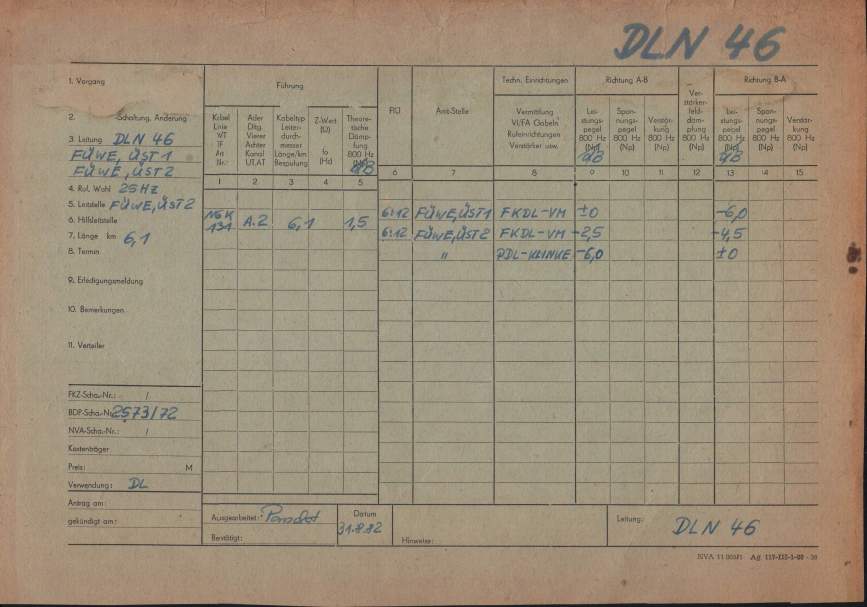 DLN 46
1. Vorgang
2. Schaltung, Änderung
3. Leitung DLN 46
FÜWE, ÜST 1
FÜWE, ÜST 2
4. Ruf, Wahl 25 Hz
5. Leitstelle FÜWE, ÜST 2
6. Hilfsleitstelle
7. Länge km 6,1
8. Termin
9. Erledigungsmeldung
10. Bemerkungen
11. Verteiler
FKZ-Scha.-Nr.: /
BDP-Scha.-Nr. 2573/72
NVA-Scha.-Nr.: /
Kostenträger
Preis: M
Verwendung: DL
Antrag am:
gekündigt am:
Führung
Kabel Linie WT TF Art Nr.
Ader Dltg. Vierer Achter Kanal UT, AT
Kabeltyp Leiter- durch- messer Länge/km Bespulung
Z-Wert (Ω) fo (Hz)
Theore- tische Dämp- fung 800 Hz (Np) dB
FIÜ
Amt-Stelle
Techn. Einrichtungen
Vermittlung VI/FA Gabeln Rufeinrichtungen Verstärker usw.
Richtung A-B
Lei- stungs- pegel 800 Hz (Np) dB
Span- nungs- pegel 800 Hz (Np)
Verstär- kung 800 Hz (Np)
Ver- stärker- feld- däm- pfung 800 Hz (Np)
Richtung B-A
Lei- stungs- pegel 800 Hz (Np) dB
Span- nungs- pegel 800 Hz (Np)
Verstär- kung 800 Hz (Np)
1 2 3 4 5 6 7 8 9 10 11 12 13 14 15
NGK 131 A.2 6,1 1,5 6:12 FÜWE, ÜST 1 FKDL-VM ±0 -6,0
6:12 FÜWE, ÜST 2 FKDL-VM -2,5 -4,5
" PDL-KLINKE -6,0 ±0
Ausgearbeitet:
Bestätigt:
Datum
31.8.82
Hinweise:
Leitung: DLN 46
NVA 11 003/1 Ag 117-III-1-69 - 38